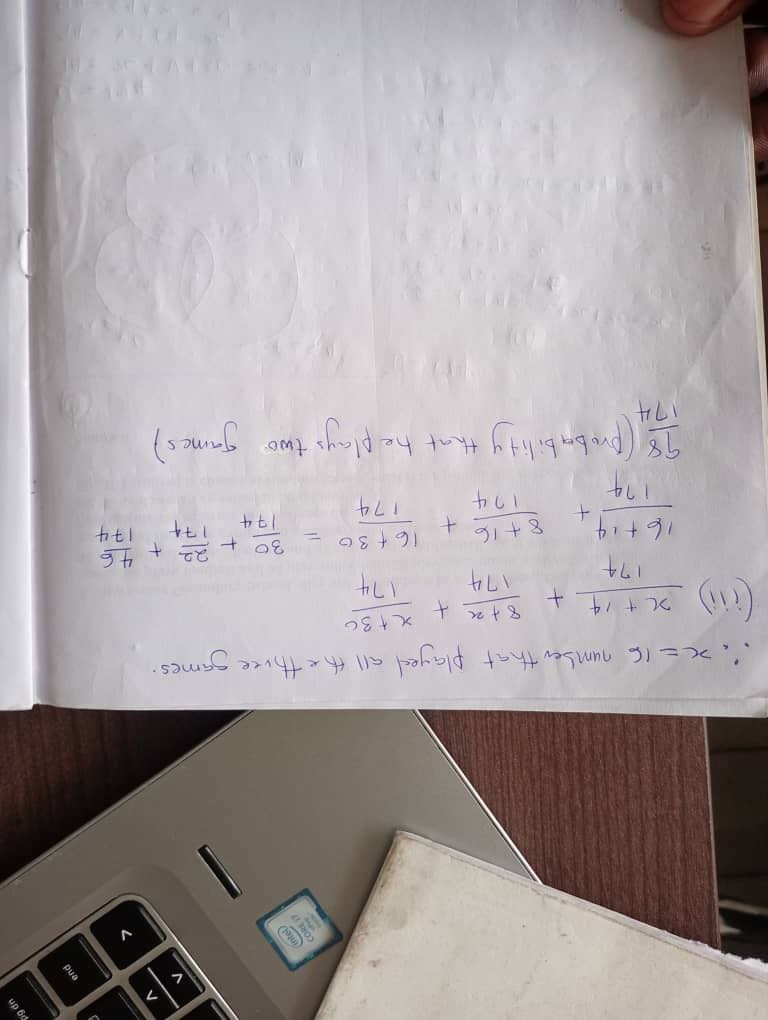 pg dn
end
intel
CORE i7
∴ x = 16 number that played all the three games.
(iii) x + 14/174 + 8 + x/174 + x + 30/174
16 + 14/174 + 8 + 16/174 + 16 + 30/174 = 30/174 + 22/174 + 46/174
98/174 (probability that he plays two games)